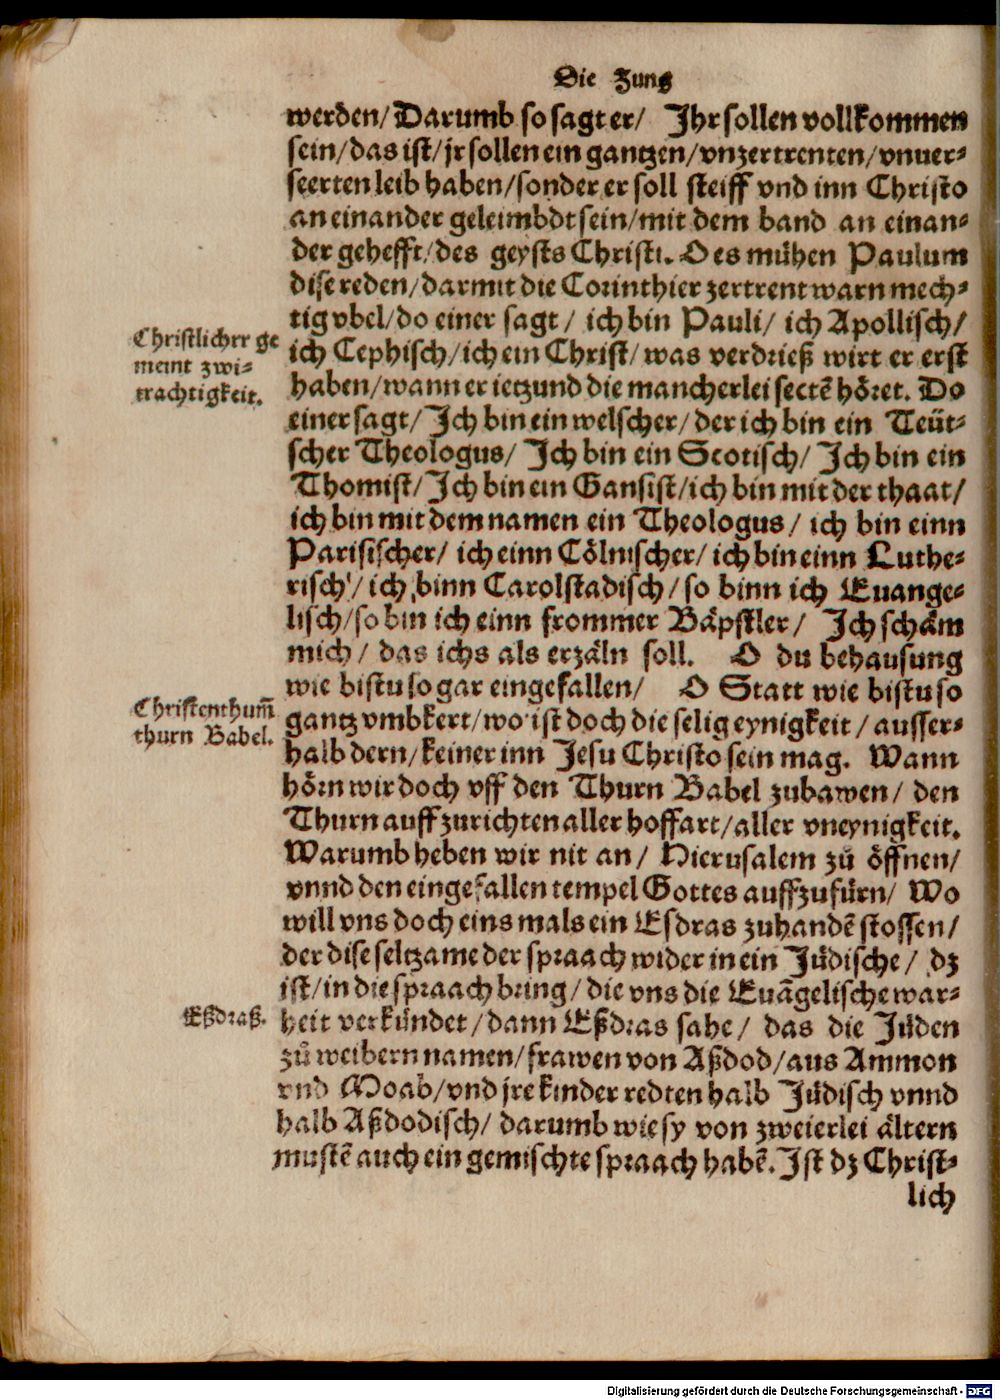 Die Zung
werden/Darumb so sagt er/ Ihr sollen vollkommen
sein/das ist/jr sollen ein gantzen/vnzertrenten/vnuer-
seerten leib haben/sonder er soll steiff vnd inn Christo
an einander geleimbdt sein/mit dem band an einan-
der gehefft/des geysts Christi. Des mühen Paulum
dise reden/darmit die Corinthier zertrent warn mech-
tig vbel/do einer sagt/ ich bin Pauli/ ich Apollisch/
Christlicher ge
meint zwi-
trachtigkeit.
ich Cephisch/ich ein Christ/was verdrieß wirt er erst
haben/wann er ietzund die mancherlei sectē höret. Do
einer sagt/Ich bin ein welscher/der ich bin ein Teüt-
scher Theologus/ Ich bin ein Scotisch/ Ich bin ein
Thomist/Ich bin ein Gansist/ich bin mit der thaat/
ich bin mit dem namen ein Theologus/ ich bin einn
Parisischer/ ich einn Cölnischer/ich bin einn Luthe-
risch/ich binn Carolstadisch/so binn ich Euange-
lisch/so bin ich einn frommer Bäpstler/ Ich schäm
mich/ das ichs als erzäln soll. O du behausung
wie bistu so gar eingefallen/ O Statt wie bistu so
Christenthum̄
thurn Babel.
gantz vmbkert/wo ist doch die selig eynigkeit/ausser-
halb dern/keiner inn Jesu Christo sein mag. Wann
hörn wir doch vff den Thurn Babel zubawen/ den
Thurn auffzurichten aller hoffart/aller vneynigkeit.
Warumb heben wir nit an/ Hierusalem zů öffnen/
vnnd den eingefallen tempel Gottes auffzufürn/ Wo
will vns doch eins mals ein Esdras zuhandē stossen/
der dise seltzame der spraach wider in ein Jüdische/ dz
ist/in die spraach bring/die vns die Euāgelische war-
Eßdraß.
heit verkündet/dann Eßdras sahe/ das die Jüden
zů weibern namen/frawen von Aßdod/aus Ammon
vnd Moab/vnd jre kinder redten halb Jüdisch vnnd
halb Aßdodisch/ darumb wie sy von zweierlei ältern
mustē auch ein gemischte spraach habē. Ist dz Christ-
lich
Digitalisierung gefördert durch die Deutsche Forschungsgemeinschaft - DFG